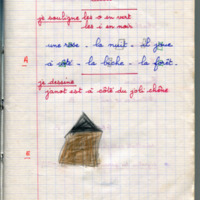 je souligne les o en vert
les i en noir
une rose - la nuit - il joue
A
à côté - la bûche - la forêt.
je dessine
janot est à côté du joli chêne
E